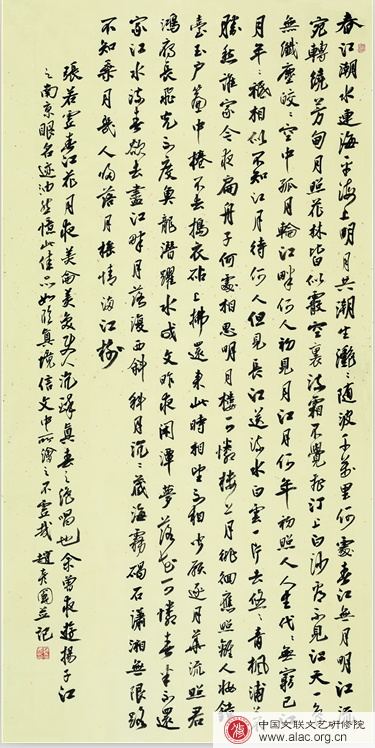 春江潮水連海平海上明月共潮生灩々隨波千萬里何處春江無月明江流
宛轉繞芳甸月照花林皆似霰空裏流霜不覺飛汀上白沙看不見江天一色
無纖塵皎々空中孤月輪江畔何人初見月江月何年初照人人生代々無窮已江
月年々祗相似不知江月待何人但見長江送流水白雲一片去悠々青楓浦上
勝愁誰家今夜扁舟子何處相思明月樓可憐樓上月徘徊應照離人妝鏡
臺玉戶簾中捲不去搗衣砧上拂還來此時相望不相聞願逐月華流照君
鴻雁長飛光不度魚龍潛躍水成文昨夜閒潭夢落花可憐春半不還
家江水流春欲去盡江畔月落復西斜斜月沉々藏海霧碣石瀟湘無限路
不知乘月幾人歸落月搖情滿江樹
張若虛春江花月夜美侖美奐人沉醉真之絕唱也余曾夜遊揚子江
之南京名迹油然憶此佳品如臨真境信文中所謂之不虛哉趙彥國並記
中国文联文艺研修院
www.alac.org.cn